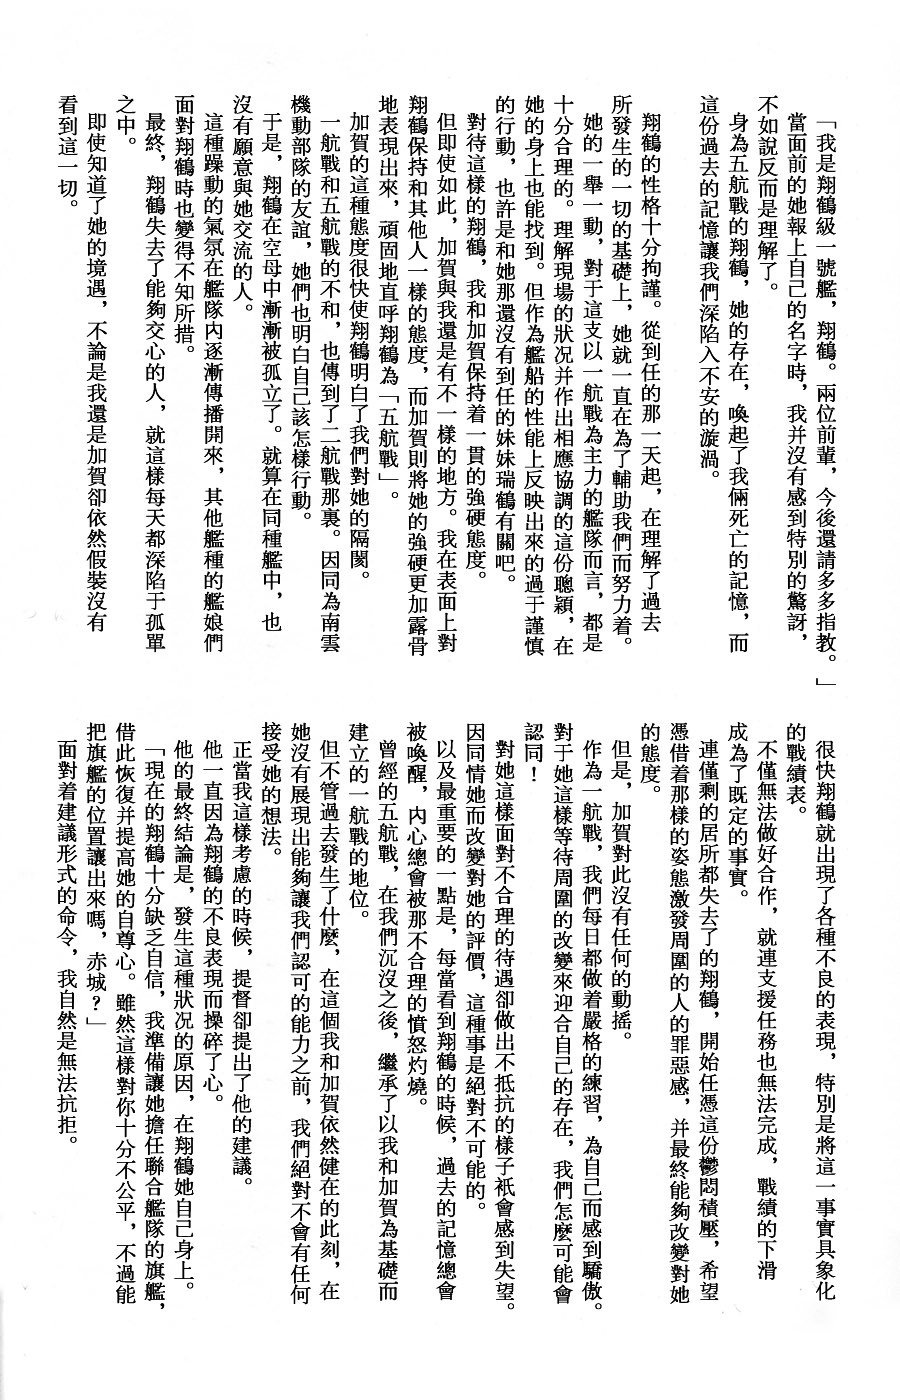 「我是翔鶴級一號艦，翔鶴。兩位前輩，今後還請多多指教。」
當面前的她報上自己的名字時，我并沒有感到特別的驚訝，
不如說反而是理解了。
身為五航戰的翔鶴，她的存在，喚起了我倆死亡的記憶，而
這份過去的記憶讓我們深陷入不安的漩渦。
翔鶴的性格十分拘謹。從到任的那一天起，在理解了過去
所發生的一切的基礎上，她就一直在為了輔助我們而努力着。
她的一舉一動，對于這支以一航戰為主力的艦隊而言，都是
十分合理的。理解現場的狀況并作出相應協調的這份聰穎，在
她的身上也能找到。但作為艦船的性能上反映出來的過于謹慎
的行動，也許是和她那還沒有到任的妹妹瑞鶴有關吧。
對待這樣的翔鶴，我和加賀保持着一貫的強硬態度。
但即使如此，加賀與我還是有不一樣的地方。我在表面上對
翔鶴保持和其他人一樣的態度，而加賀則將她的強硬更加露骨
地表現出來，頑固地直呼翔鶴為「五航戰」。
加賀的這種態度很快使翔鶴明白了我們對她的隔閡。
一航戰和五航戰的不和，也傳到了二航戰那裏。因同為南雲
機動部隊的友誼，她們也明白自己該怎樣行動。
于是，翔鶴在空母中漸漸被孤立了。就算在同種艦中，也
沒有願意與她交流的人。
這種躁動的氣氛在艦隊內逐漸傳播開來，其他艦種的艦娘們
面對翔鶴時也變得不知所措。
最終，翔鶴失去了能夠交心的人，就這樣每天都深陷于孤單
之中。
即使知道了她的境遇，不論是我還是加賀卻依然假裝沒有
看到這一切。
很快翔鶴就出現了各種不良的表現，特別是將這一事實具象化
的戰績表。
不僅無法做好合作，就連支援任務也無法完成，戰績的下滑
成為了既定的事實。
連僅剩的居所都失去了的翔鶴，開始任憑這份鬱悶積壓，希望
憑借着那樣的姿態激發周圍的人的罪惡感，并最終能夠改變對她
的態度。
但是，加賀對此沒有任何的動搖。
作為一航戰，我們每日都做着嚴格的練習，為自己而感到驕傲。
對于她這樣等待周圍的改變來迎合自己的存在，我們怎麼可能會
認同！
對她這樣面對不合理的待遇卻做出不抵抗的樣子祇會感到失望。
因同情她而改變對她的評價，這種事是絕對不可能的。
以及最重要的一點是，每當看到翔鶴的時候，過去的記憶總會
被喚醒，內心總會被那不合理的憤怒灼燒。
曾經的五航戰，在我們沉沒之後，繼承了以我和加賀為基礎而
建立的一航戰的地位。
但不管過去發生了什麼，在這個我和加賀依然健在的此刻，在
她沒有展現出能夠讓我們認可的能力之前，我們絕對不會有任何
接受她的想法。
正當我這樣考慮的時候，提督卻提出了他的建議。
他一直因為翔鶴的不良表現而操碎了心。
他的最終結論是，發生這種狀況的原因，在翔鶴她自己身上。
「現在的翔鶴十分缺乏自信，我準備讓她擔任聯合艦隊的旗艦，
借此恢復并提高她的自尊心。雖然這樣對你十分不公平，不過能
把旗艦的位置讓出來嗎，赤城？」
面對着建議形式的命令，我自然是無法抗拒。